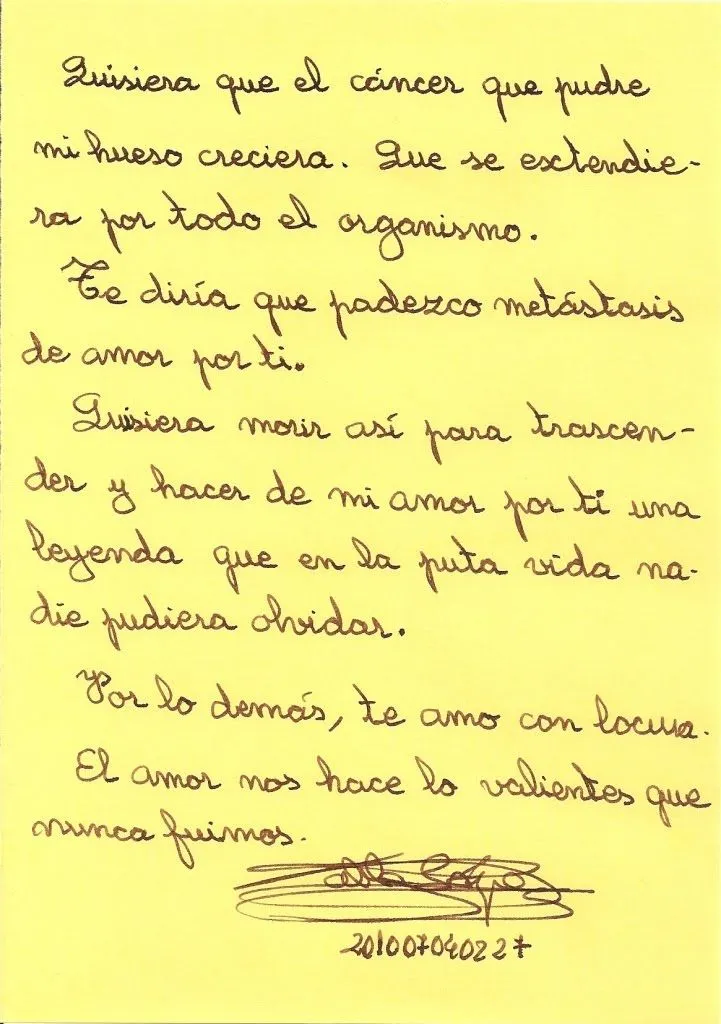 Quisiera que el cáncer que pudre
mi hueso creciera. Que se extendie-
ra por todo el organismo.
Te diría que padezco metástasis
de amor por ti.
Quisiera morir así para trascen-
der y hacer de mi amor por ti una
leyenda que en la puta vida na-
die pudiera olvidar.
Por lo demás, te amo con locura.
El amor nos hace lo valientes que
nunca fuimos.
201007040227